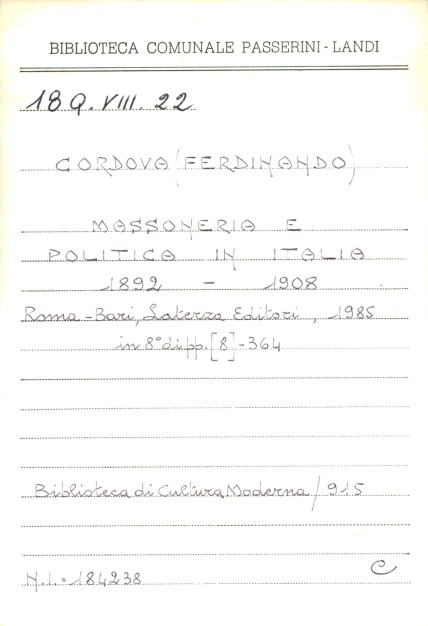 BIBLIOTECA COMUNALE PASSERINI - LANDI
18 Q. VIII. 22
CORDOVA (FERDINANDO)
MASSONERIA E
POLITICA IN ITALIA
1892 - 1908
Roma - Bari, Laterza Editori, 1985
in 8° di pp. [8] - 364
Biblioteca di Cultura Moderna / 915
N.I. = 184238
C